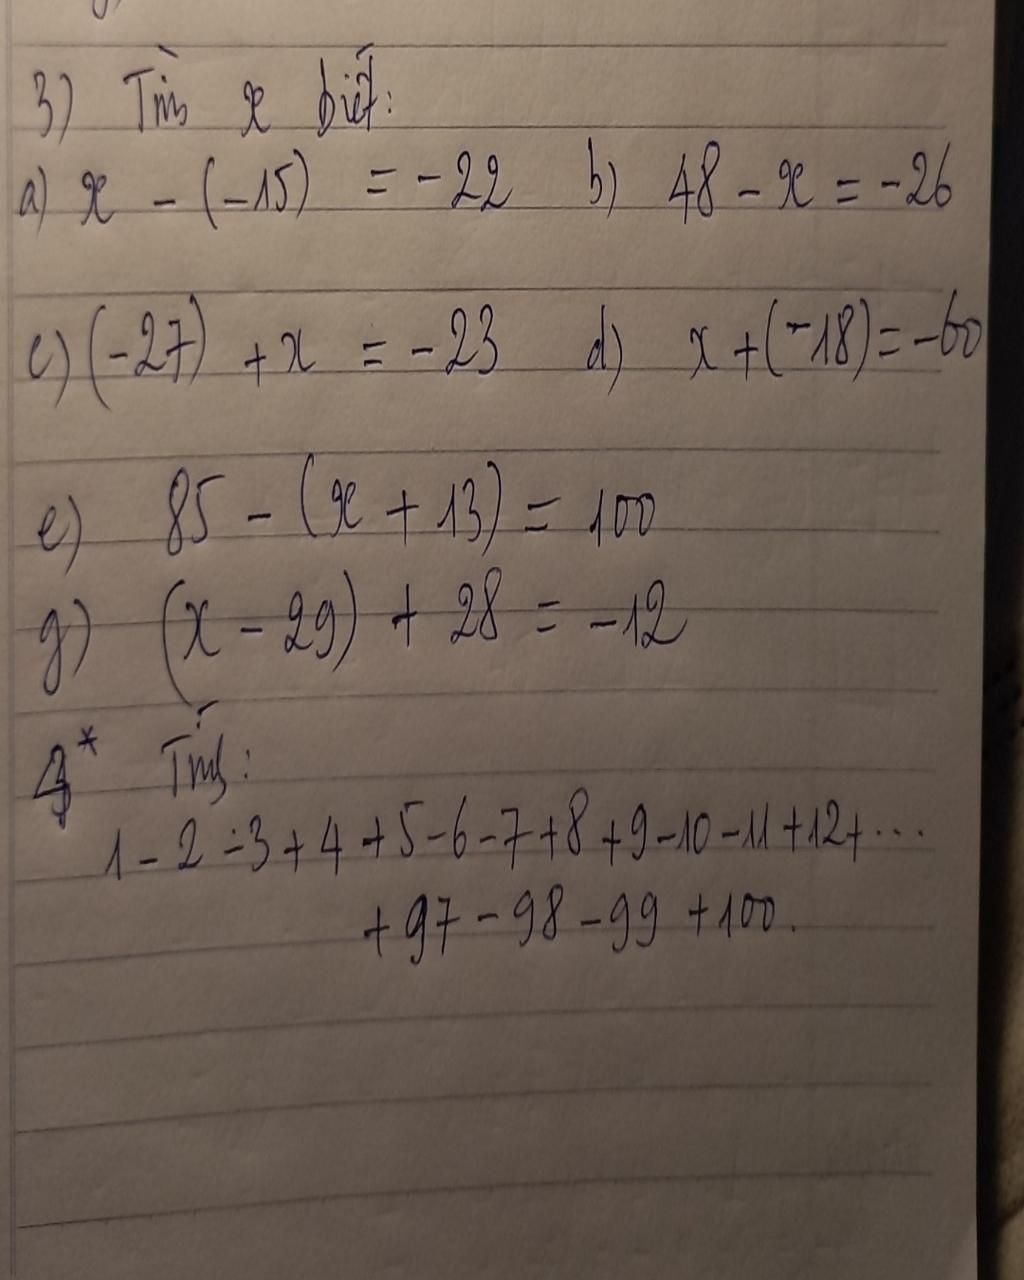 3) Tìm x biết:
a) x - (-15) = -22 b) 48 - x = -26
c) (-27) + x = -23 d) x + (-18) = -60
e) 85 - (x + 13) = 100
g) (x - 29) + 28 = -12
4* Tính:
1 - 2 - 3 + 4 + 5 - 6 - 7 + 8 + 9 - 10 - 11 + 12 + ...
+ 97 - 98 - 99 + 100.